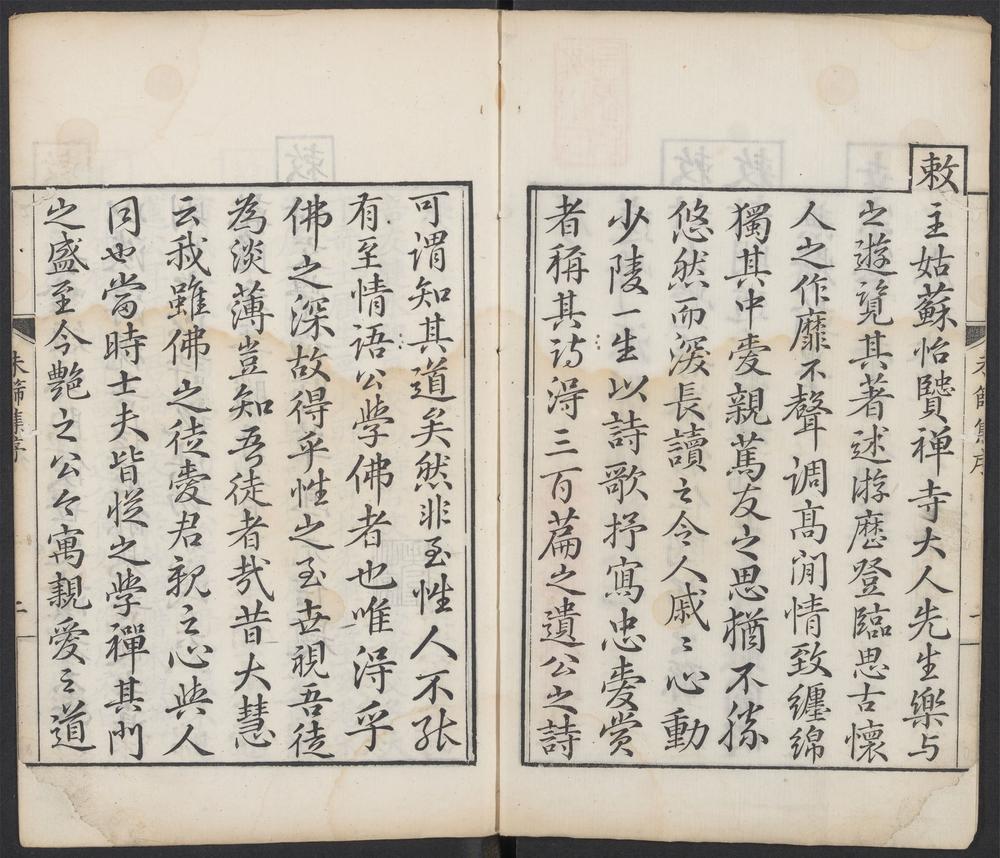 敕主姑蘇怡賢禅寺大人先生樂与
之遊覽其著述游歴登臨思古懷
人之作靡不聲调高閒情致纏綿
獨其中愛親篤友之思猶不勝
悠然而深長讀之令人戚〻心動
少陵一生以詩歌抒寫忠愛賞
者稱其詩得三百篇之遺公之詩
可谓知其道矣然非至性人不能
有至情语公學佛者也唯淂乎
佛之深故得乎性之至世視吾徒
為淡薄豈知吾徒者哉昔大慧
云我雖佛之徒愛君親之心與人
同也當時士夫皆從之学禪其门
之盛至今艷之公今寓親爱之道
未篩集序
一
集序
二